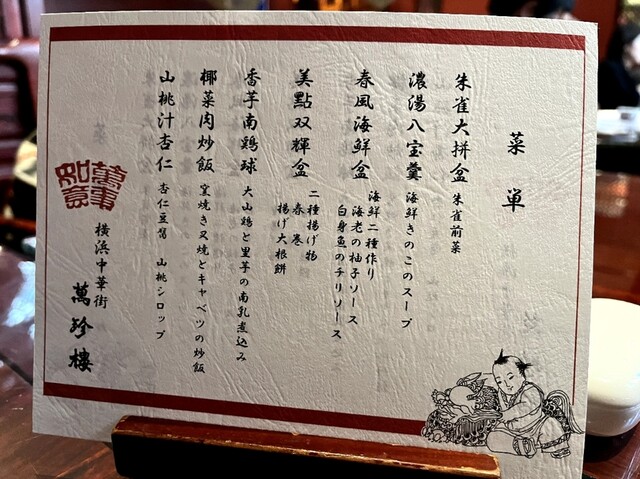 菜単
朱雀大拼盆 朱雀前菜
濃湯八宝羹 海鮮きのこのスープ
春風海鮮盆 海鮮二種作り
海老の柚子ソース
白身魚のチリソース
美點双輝盆 二種揚げ物
春巻
揚げ大根餅
香芋南鶏球 大山鶏と里芋の南乳煮込み
椰菜肉炒飯 窯焼き叉焼とキャベツの炒飯
山桃汁杏仁 杏仁豆腐 山桃シロップ
萬事
如意
横浜中華街
萬珍樓